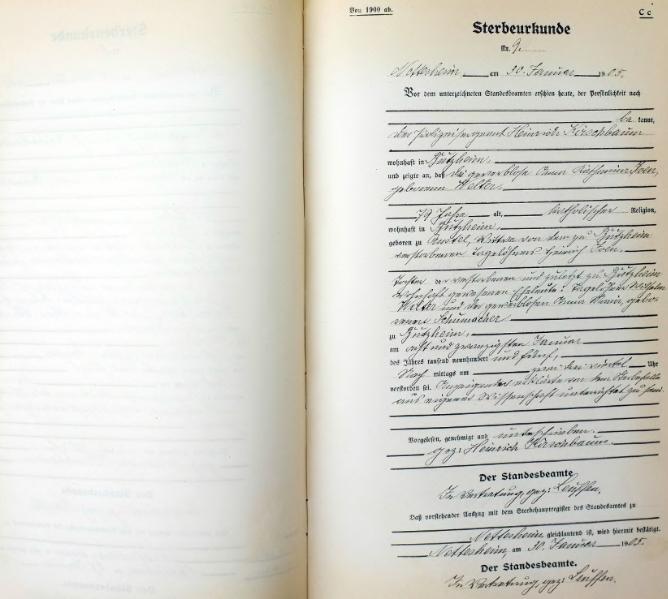 Von 1900 ab.
C c
Sterbeurkunde
Nr. 9.
Nettersheim, am 30. Januar 1905.
Vor dem unterzeichneten Standesbeamten erschien heute, der Persönlichkeit nach
be kannt,
der Polizeisergeant Heinrich Kirschbaum
wohnhaft in
und zeigte an, daß die gewerblose Anna
geborene Welter
79 Jahre alt, katholischer Religion,
wohnhaft in
geboren zu Wittwe von dem zu
verstorbenen Tagelöhners Heinrich
Tochter der verstorbenen und zuletzt zu
wohnhaft gewesenen Eheleute: Tagelöhner
Welter und der gewerblosen Anna Maria, gebo-
renen Schumacher
zu
am acht und zwanzigsten Januar
des Jahres tausend neunhundert und fünf,
Nach mittags um drei viertel Uhr
verstorben sei. Anzeigender erklärte von dem Sterbefalle
aus eigener Wissenschaft unterrichtet zu sein.
Vorgelesen, genehmigt und unterschrieben.
gez: Heinrich Kirschbaum.
Der Standesbeamte
In Vertretung, gez:
Daß vorstehender Auszug mit dem Sterbehauptregister des Standesamtes zu
Nettersheim gleichlautend ist, wird hiermit bestätigt.
Nettersheim, am 30. Januar 1905.
Der Standesbeamte.
In Vertretung, gez: